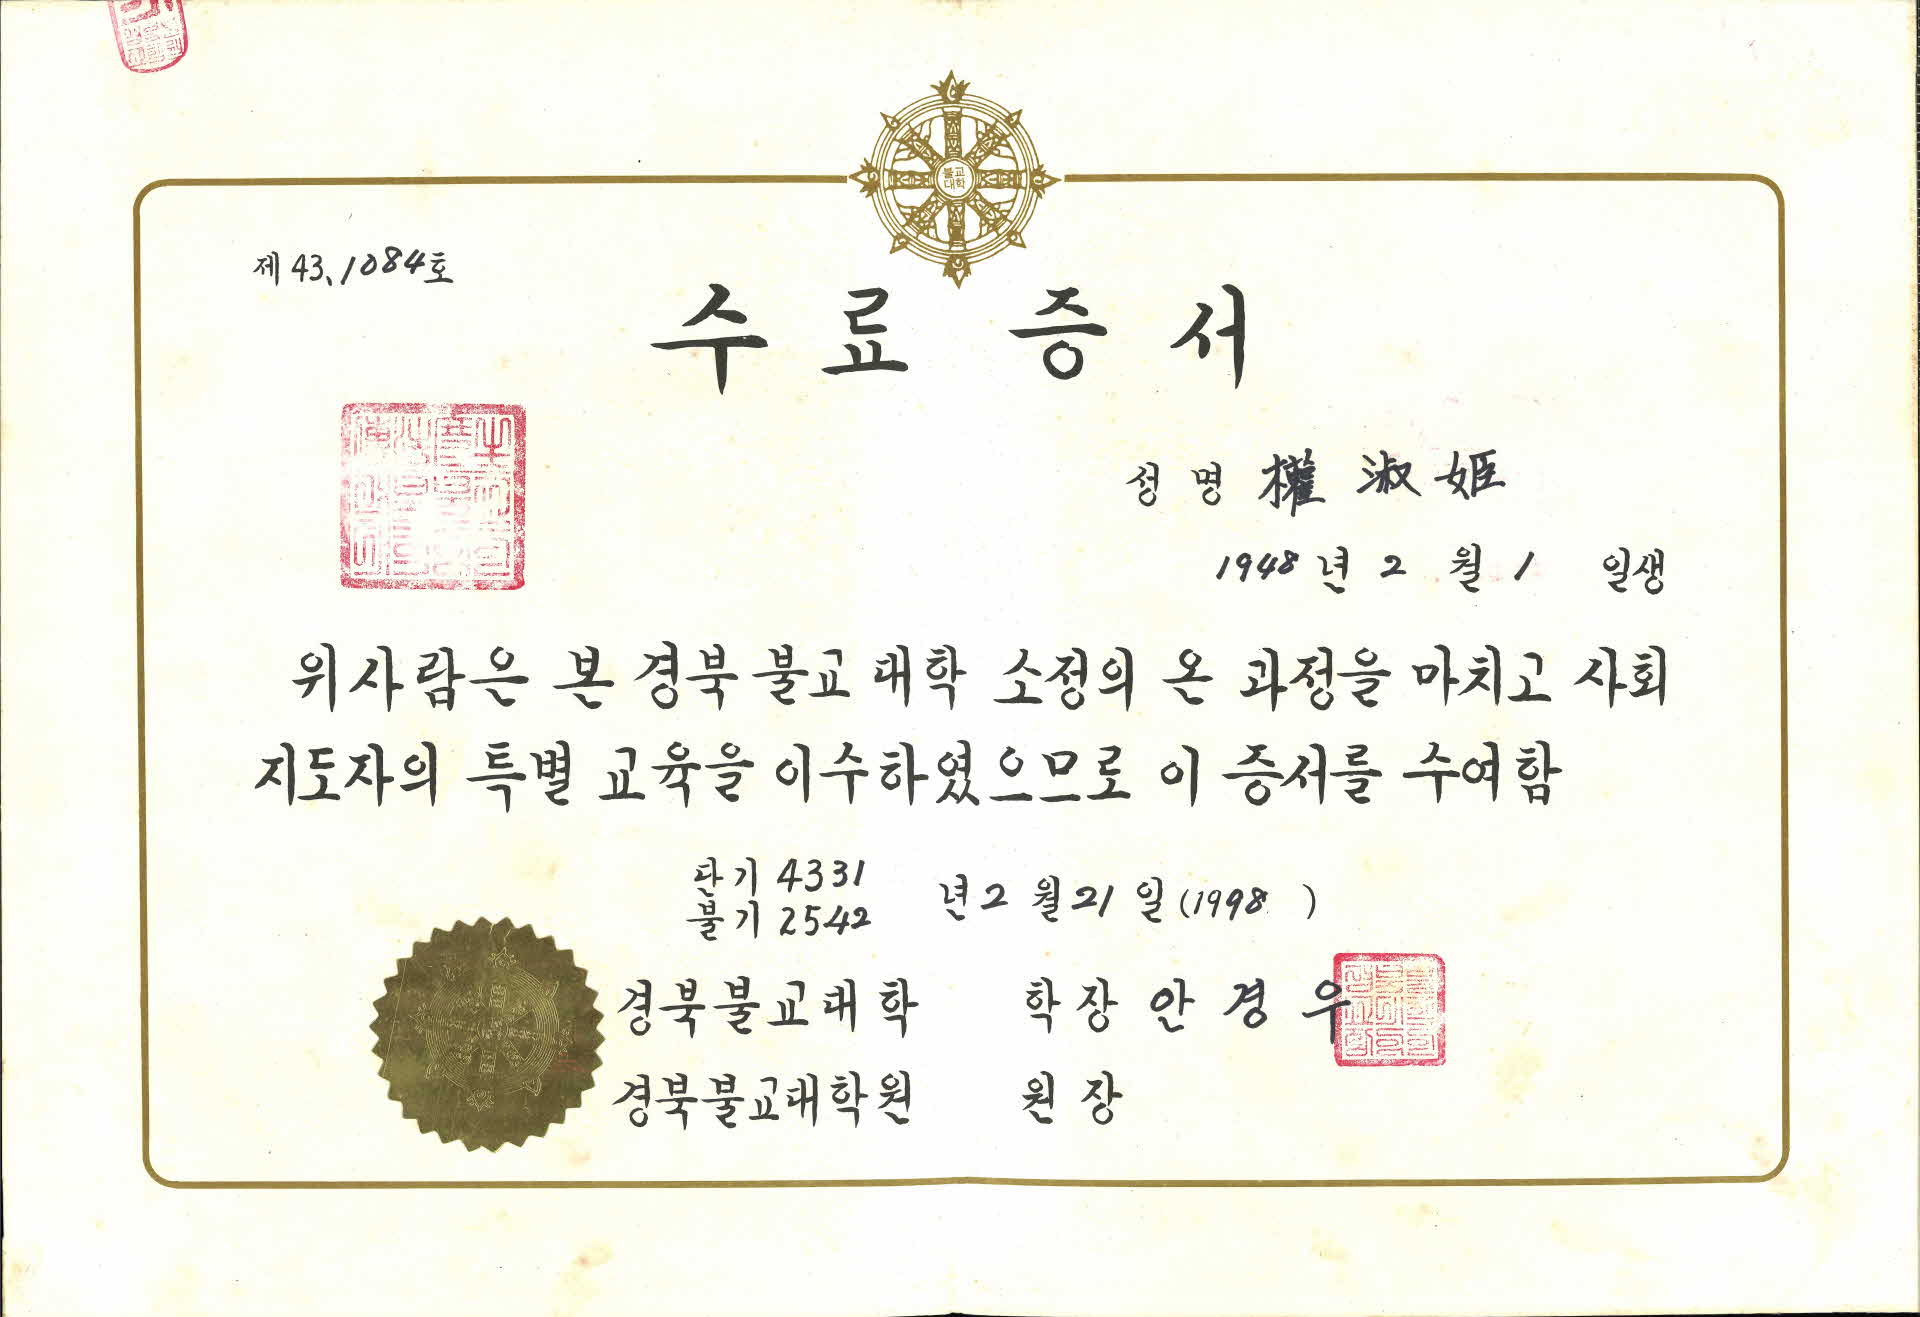 불교
대학
제 43, 1084호
수료증서
성명 權淑姬
1948년 2월 1일생
위사람은 본 경북불교대학 소정의 온 과정을 마치고 사회
지도자의 특별 교육을 이수하였으므로 이 증서를 수여함
단기 4331
불기 2542
년 2월 21일 (1998 )
경북불교대학 학장 안경우
경북불교대학원 원장